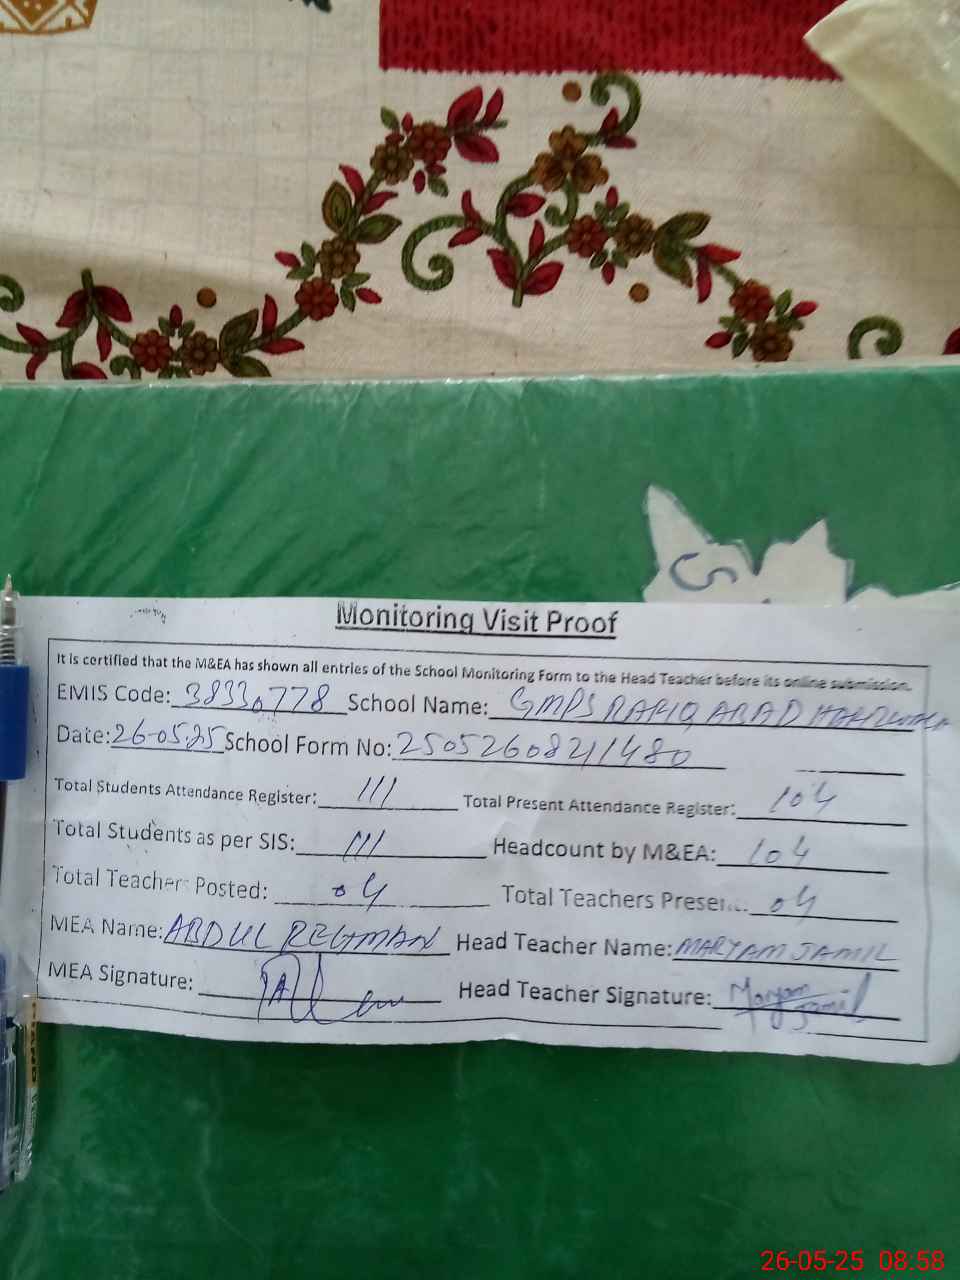 Monitoring Visit Proof
It is certified that the M&EA has shown all entries of the School Monitoring Form to the Head Teacher before its online submission.
EMIS Code: 38330778 School Name: GMPS RAFIQ ABAD
Date: 26-05-25 School Form No: 25052608211480
Total Students Attendance Register: 111 Total Present Attendance Register: 104
Total Students as per SIS: 111 Headcount by M&EA: 104
Total Teachers Posted: 04 Total Teachers Present: 04
MEA Name: ABDUL REHMAN Head Teacher Name: MARYAM JAMIL
MEA Signature: Head Teacher Signature: Maryam Jamil
26-05-25 08:58